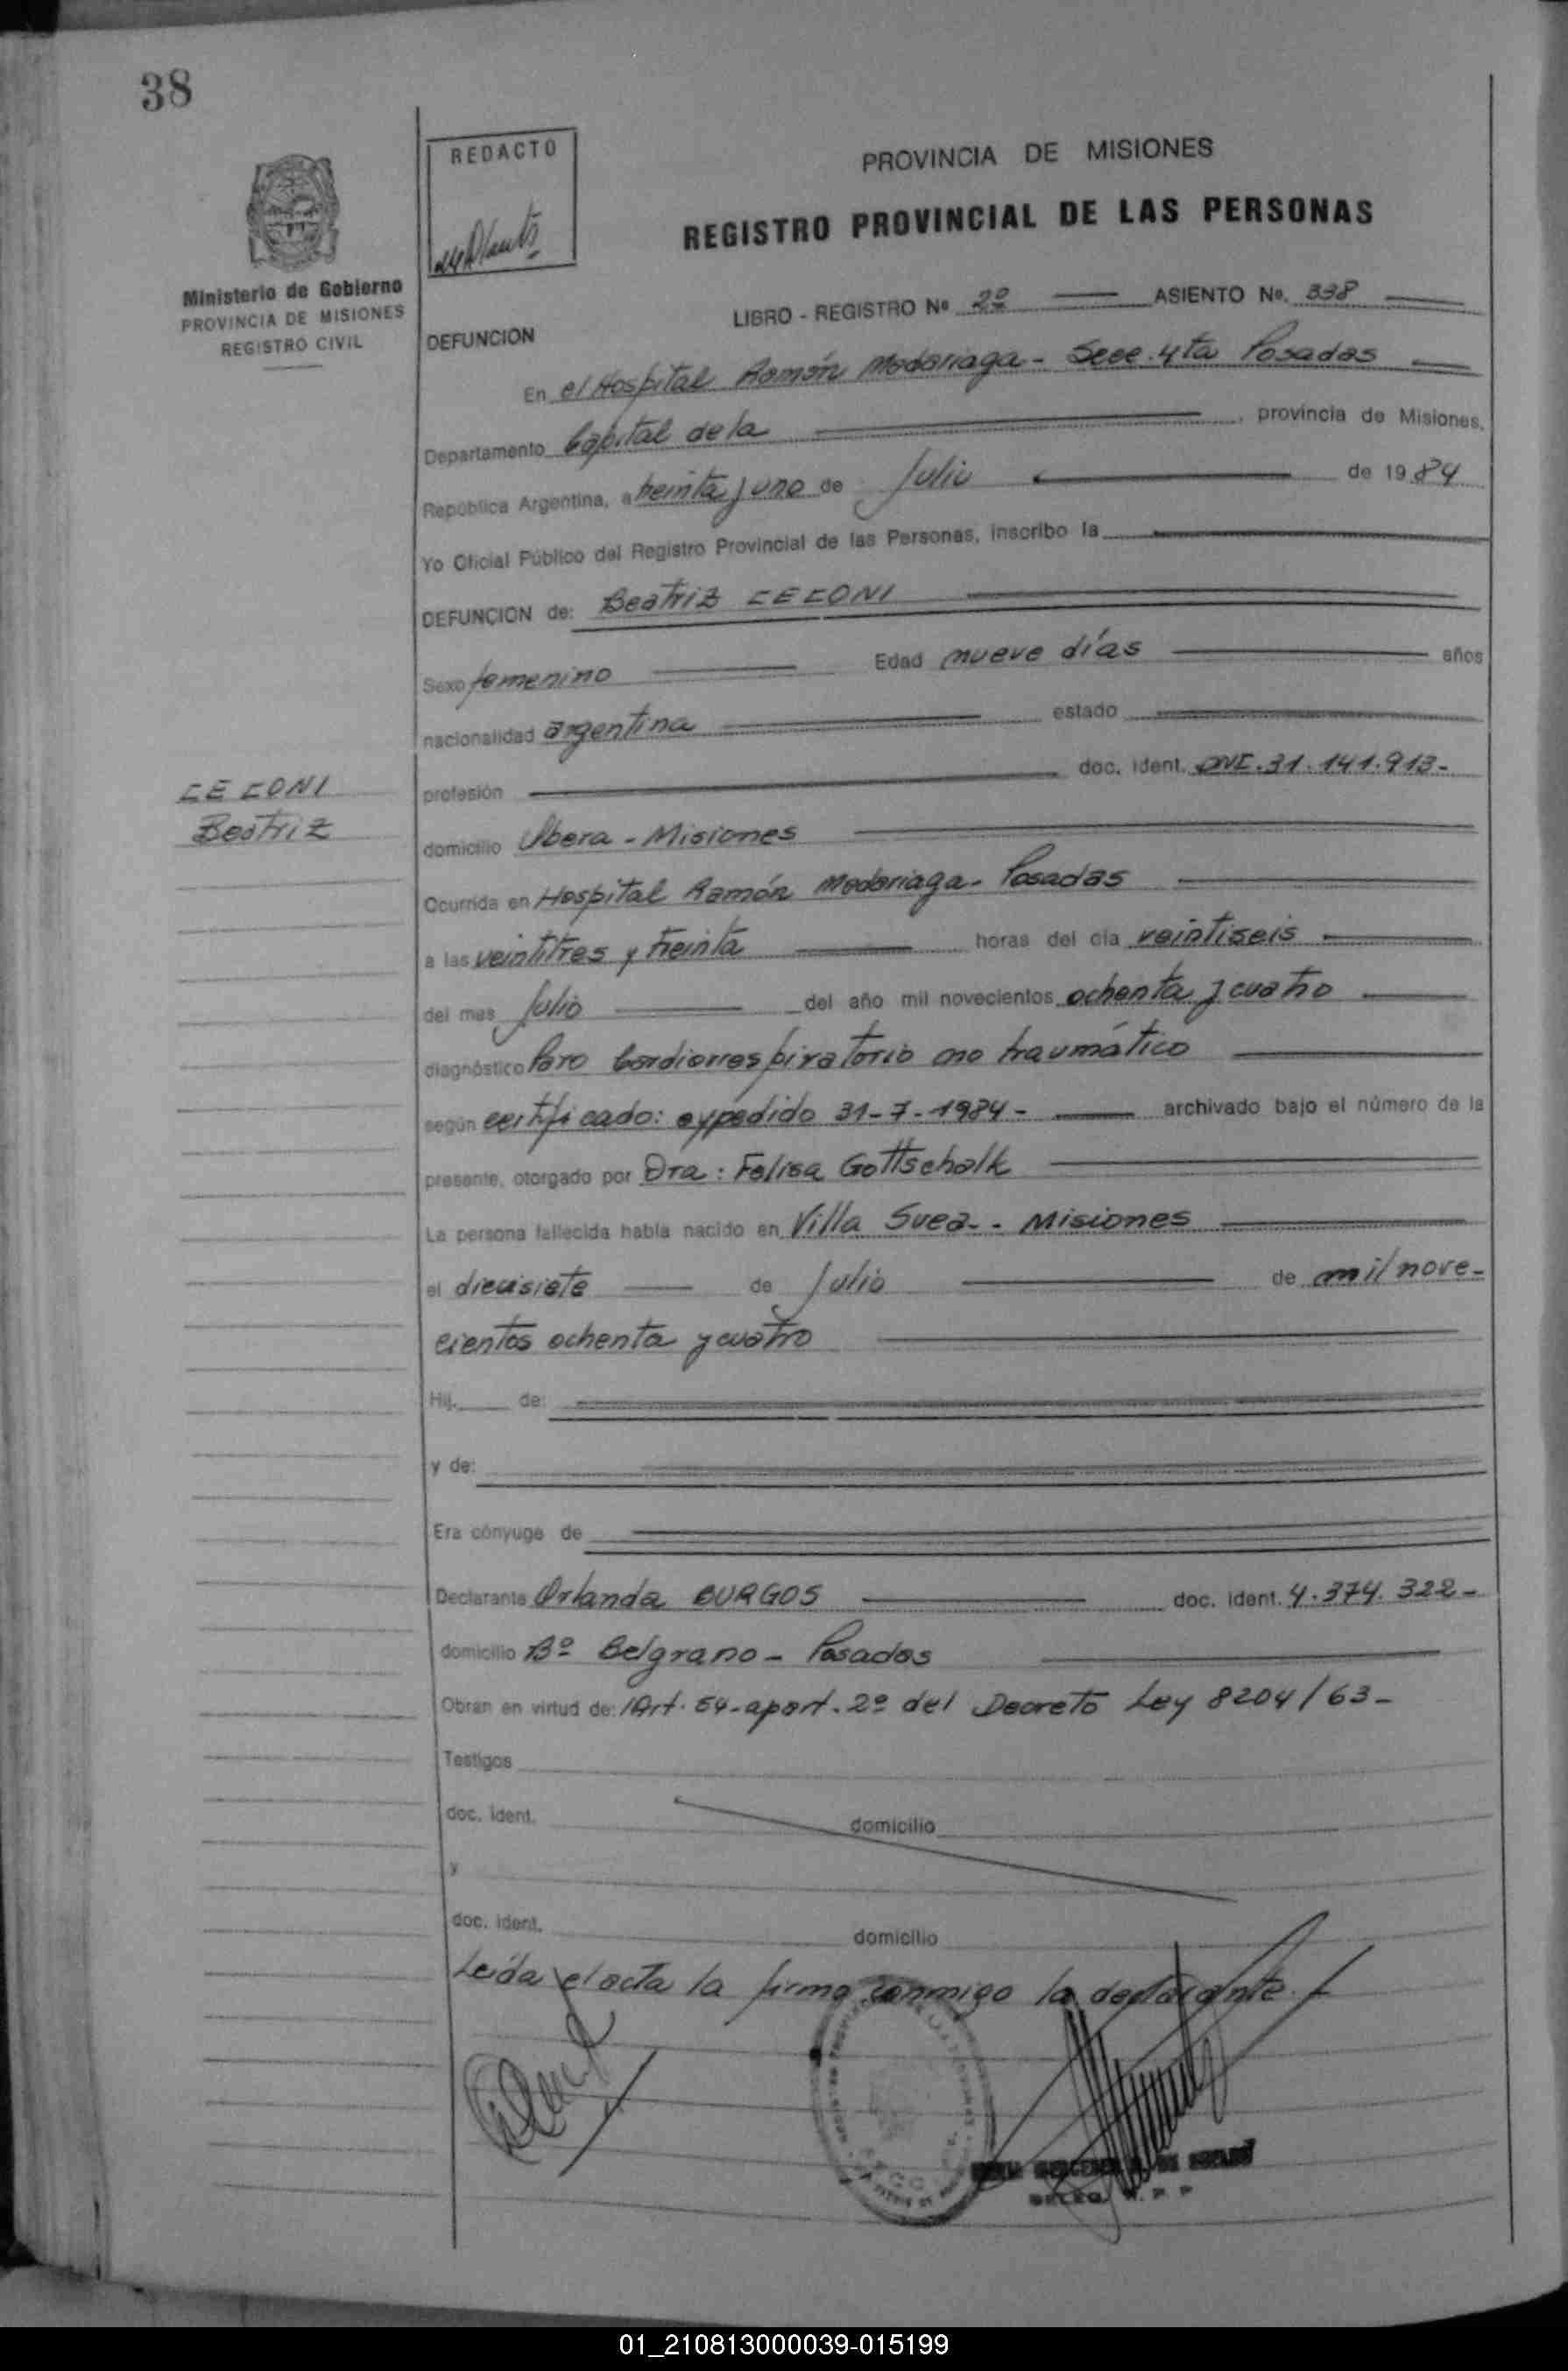 38
REDACTO
PROVINCIA DE MISIONES
REGISTRO PROVINCIAL DE LAS PERSONAS
Ministerio de Gobierno
PROVINCIA DE MISIONES
REGISTRO CIVIL
LIBRO - REGISTRO Nº 2º ASIENTO No. 338
DEFUNCION
En el Hospital Ramón Madariaga - Secc. 4ta Posadas
Departamento Capital de la , provincia de Misiones,
República Argentina, a treinta y uno de Julio de 1984
Yo Oficial Público del Registro Provincial de las Personas, inscribo la
DEFUNCION de: Beatriz CECONI
Sexo femenino Edad nueve días años
nacionalidad argentina estado
profesión doc. ident. DNI. 31.141.913-
CECONI
Beatriz
domicilio Obera - Misiones
Ocurrida en Hospital Ramón Madariaga - Posadas
a las veintitres y treinta horas del día veintiseis
del mes Julio del año mil novecientos ochenta y cuatro
diagnóstico Paro Cardiorrespiratorio no traumático
según certificado: expedido 31-7-1984- archivado bajo el número de la
presente, otorgado por Dra: Felisa Gottschalk
La persona fallecida había nacido en Villa Svea - Misiones
el diecisiete de Julio de mil nove-
cientos ochenta y cuatro
Hij. de:
y de:
Era cónyuge de
Declarante Orlanda BURGOS doc. ident. 4.374.322-
domicilio Bº Belgrano - Posadas
Obran en virtud de: Art. 54-apart. 2º del Decreto Ley 8204/63-
Testigos
doc. ident. domicilio
y
doc. ident. domicilio
Leída el acta la firma conmigo la declarante.-
01_210813000039-015199